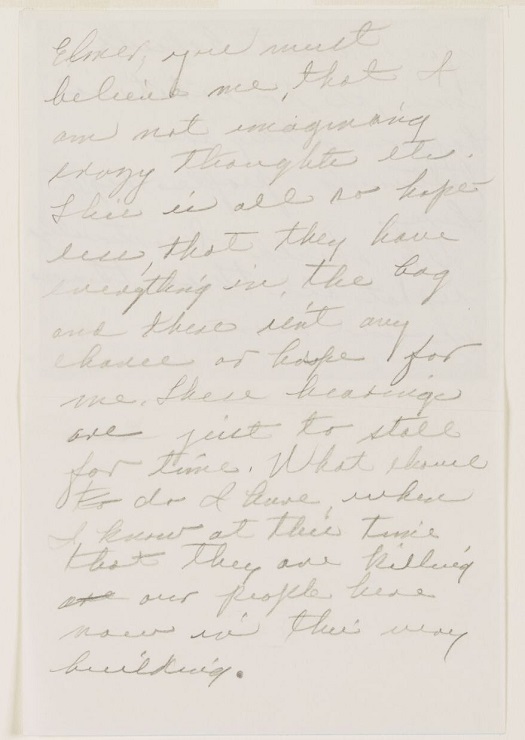 Elmer, you must
believe me, that I
am not imagining
crazy thoughts etc.
This is all so hope
less, that they have
everything in the bag
and there isn't any
chance or hope for
me. These hearings
are just to stall
for time. What
to do I have when
I know at this time
that they are killing
are our people here
now in this very
building.